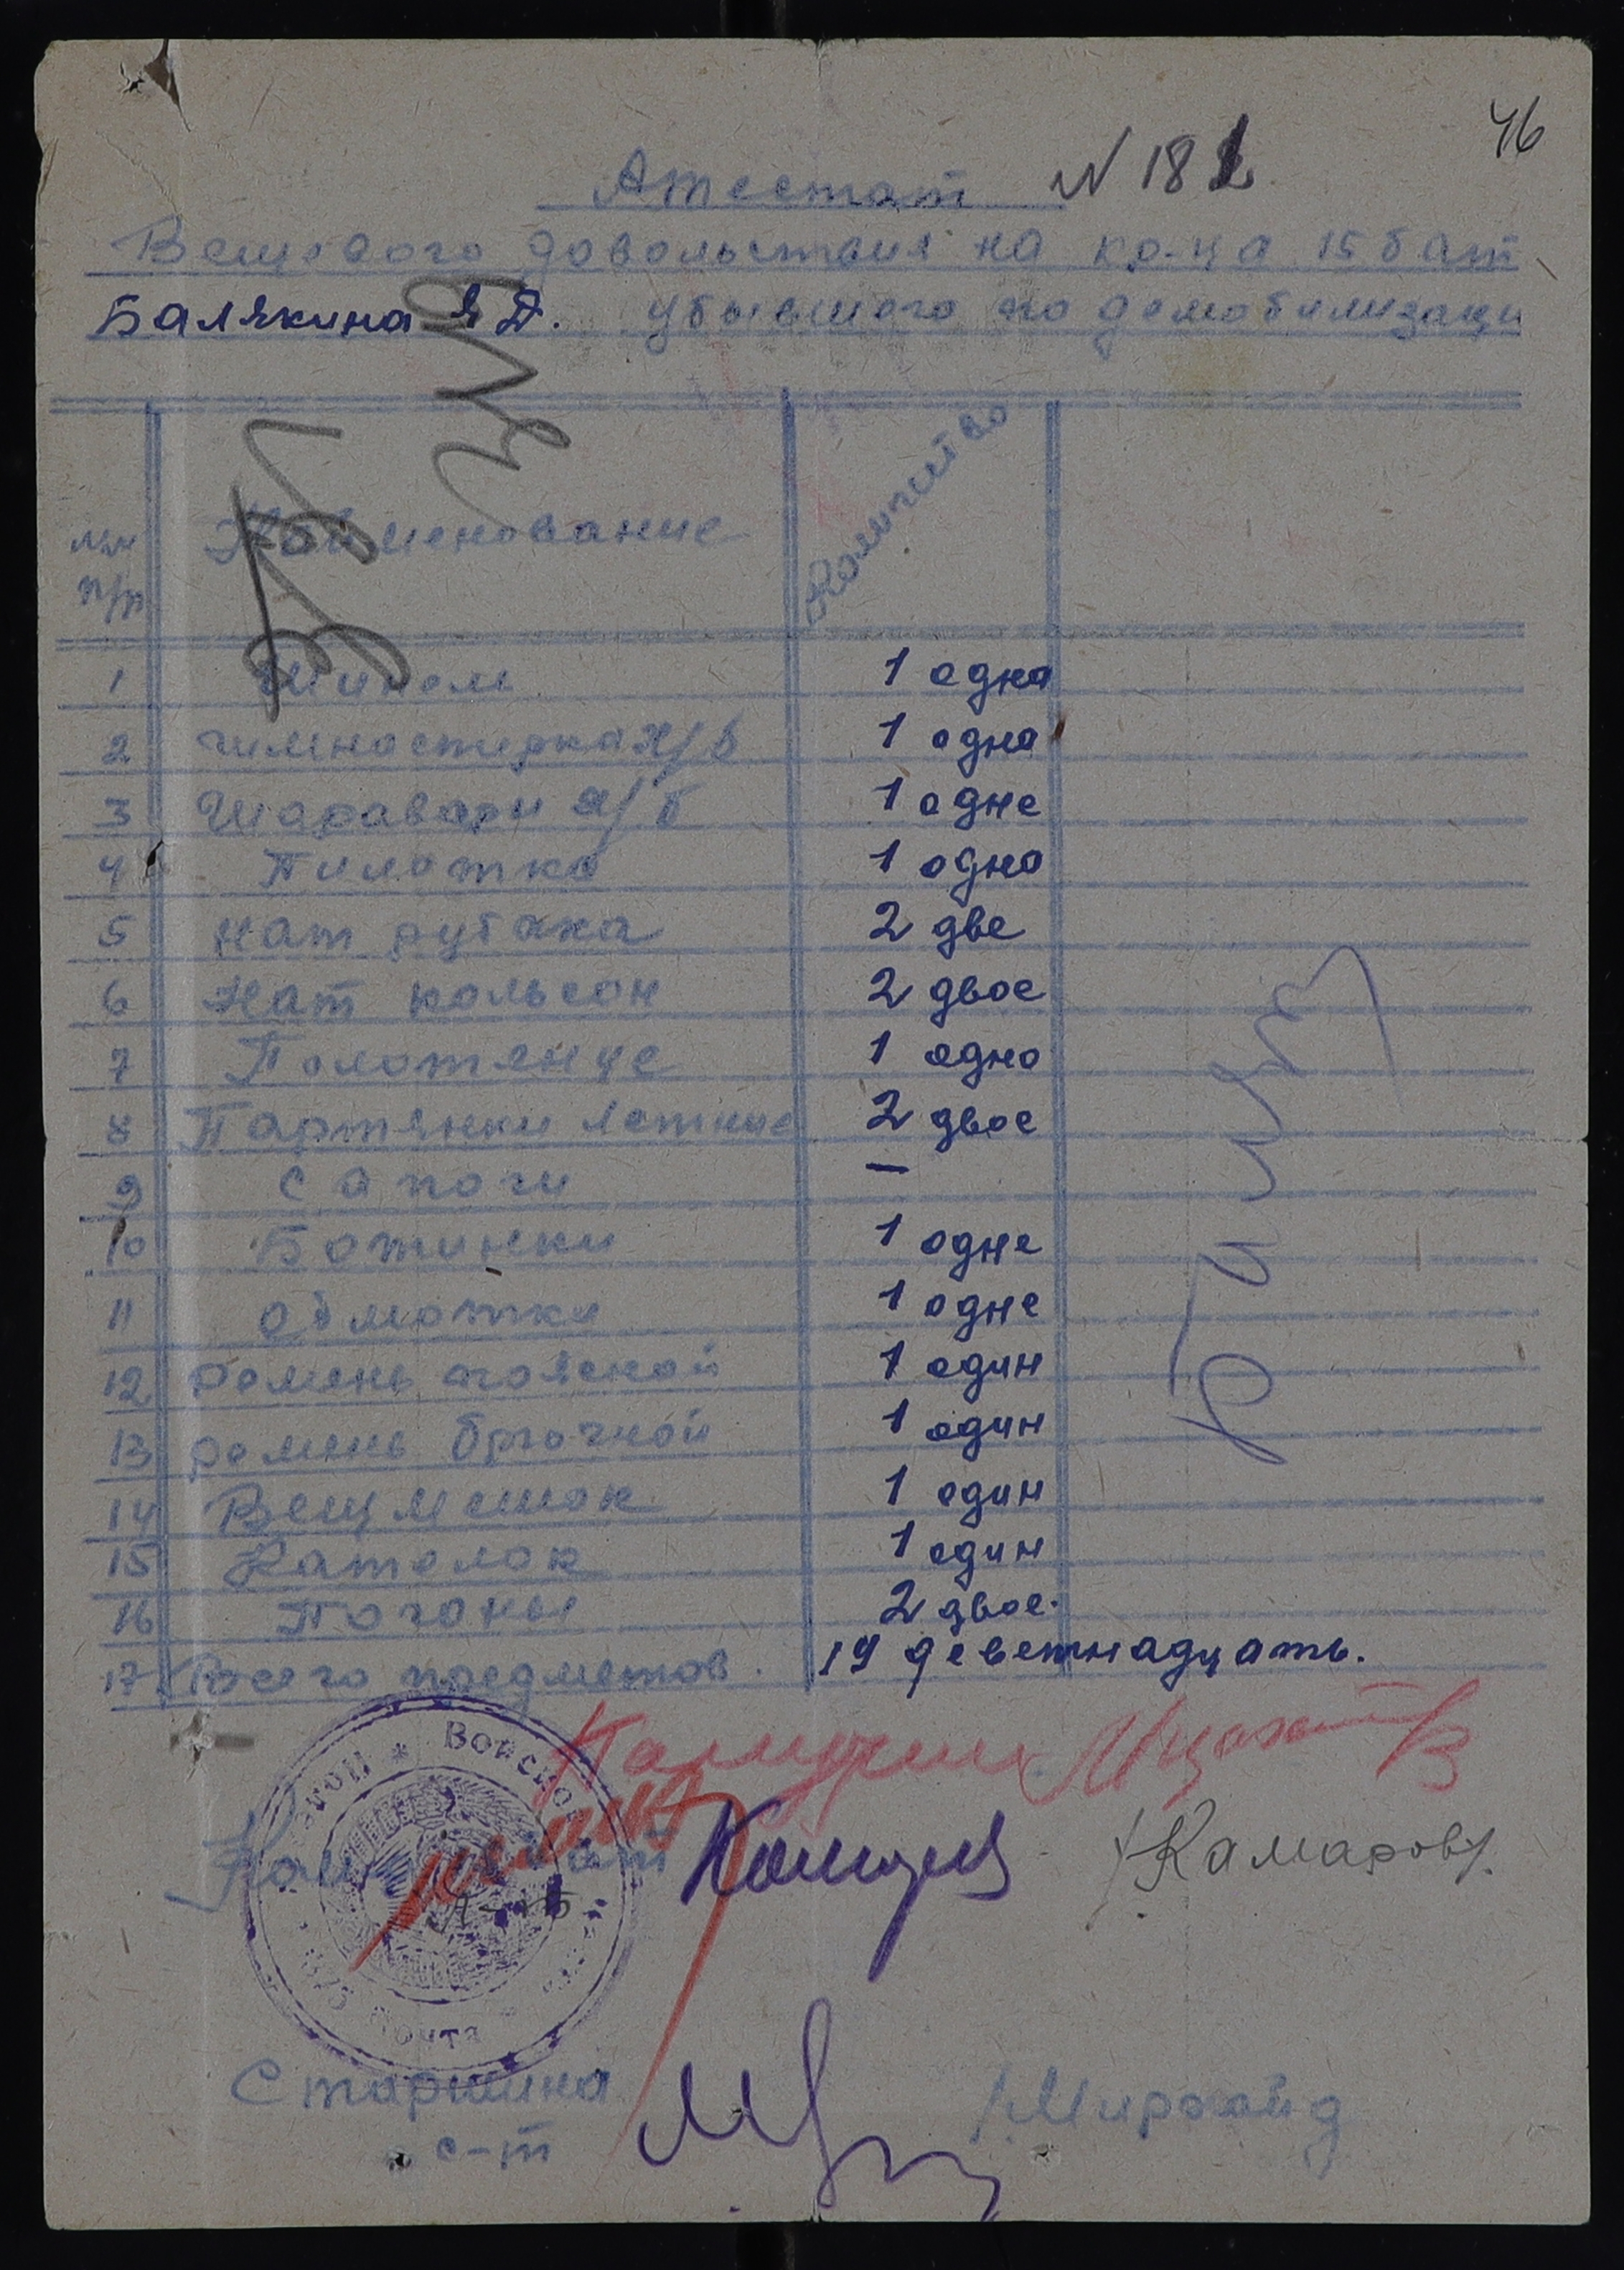 46
Атестат N 181
Вещевого довольствия на кр-ца 15 бат
Балякина Я Д. убывшого по демобилизаци
NN п/п Наименование Количество
1 Шинель 1 одна
2 Гимностирка х/б 1 одна
3 Шаравари х/б 1 одне
4 Пилотка 1 одна
5 Нат рубаха 2 две
6 Нат кальсон 2 двое
7 Полотенце 1 одно
8 Партянки летние 2 двое
9 Сапоги —
10 Ботинки 1 одне
11 обмотки 1 одне
12 Ремень поясной 1 один
13 ремень брючной 1 один
14 Вещмешок 1 один
15 Кателок 1 один
16 Погоны 2 двое.
17 Всего предметов. 19 деветнадцать.
Войсков
Почта
Ком бат /Камаров/.
Старшина /Мирзаид
с-т